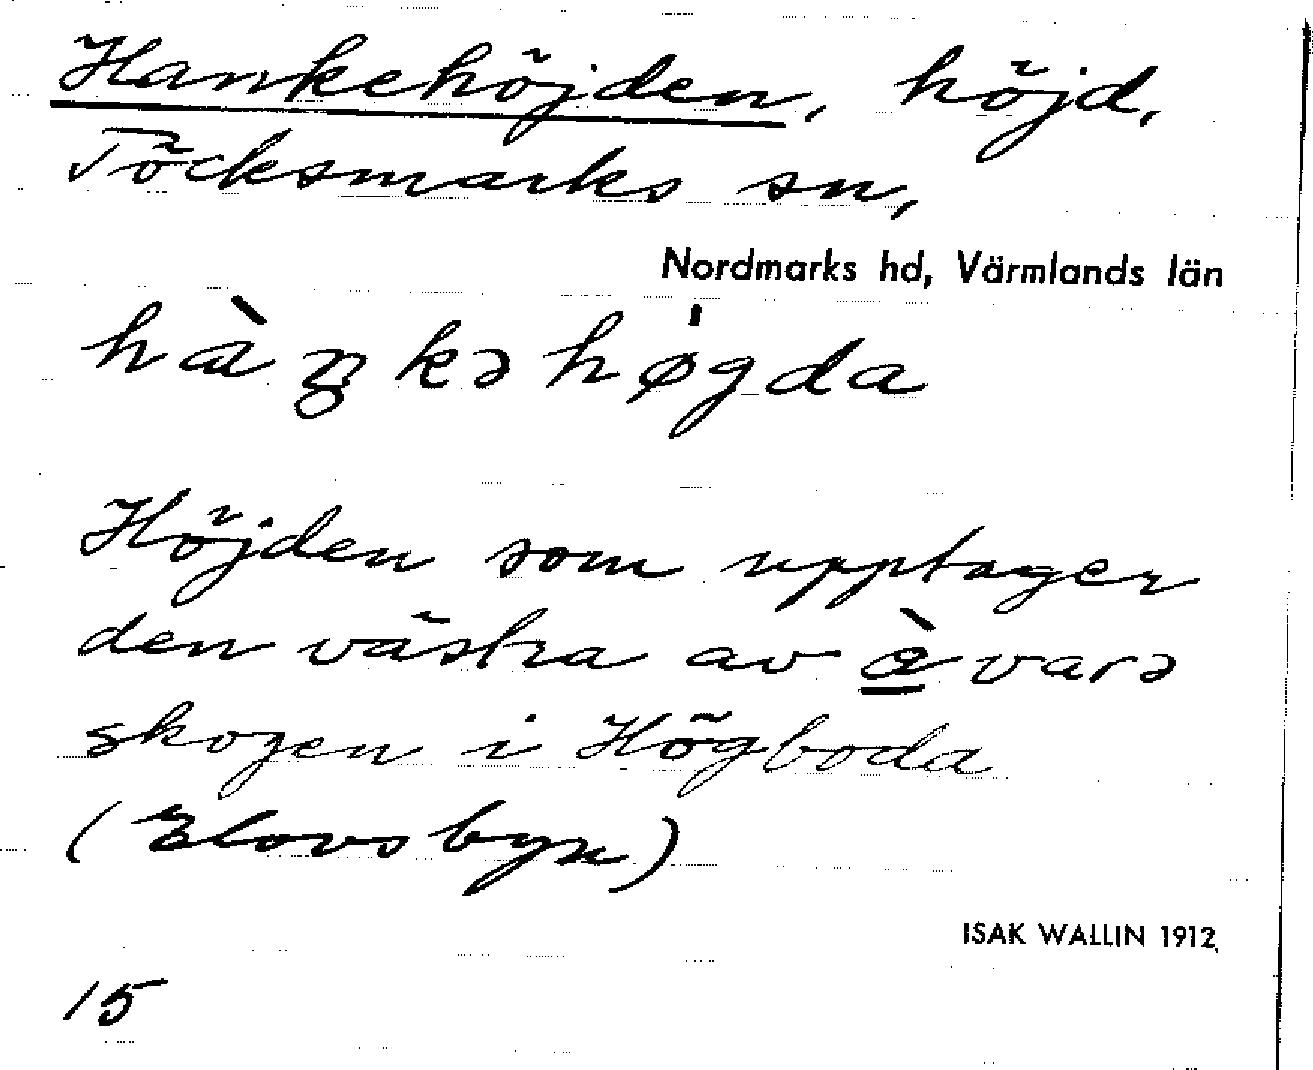 Hankehöjden, höjd,
Töcksmarks sn,
Nordmarks hd, Värmlands län
hàŋkəhø̍gda
Höjden som upptager
den västra av
skogen i Högboda
(Elovsbyn)
ISAK WALLIN 1912
15